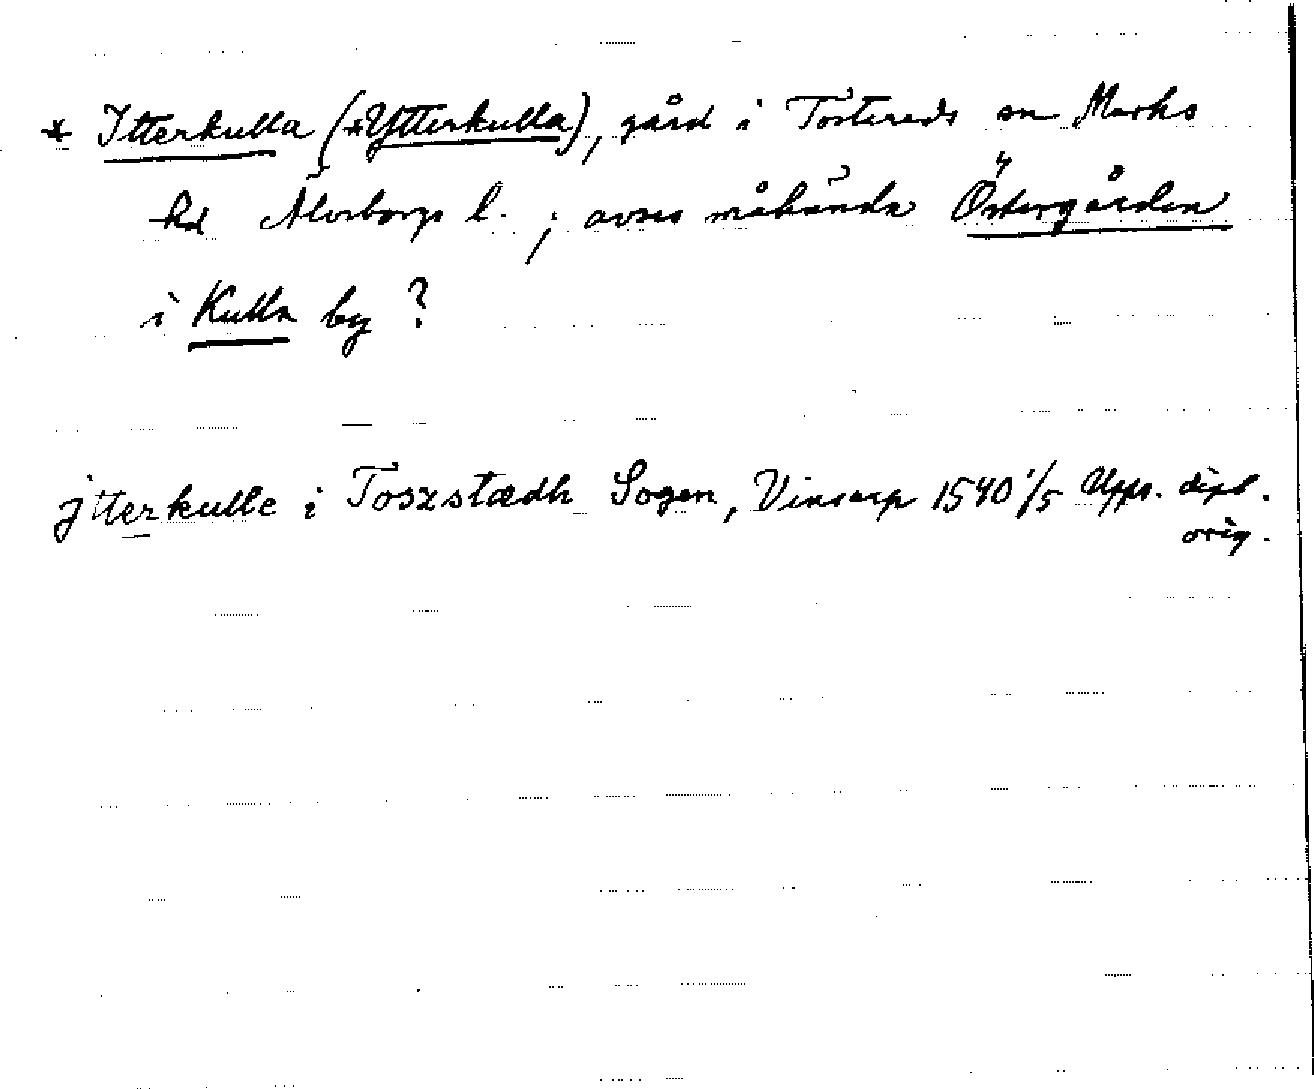 * Itterkulla (*Ytterkulla), gård i Töstereds sn Marks
hd Älvsborgs l. ; avses måhända Östergården
i Kulla by ?
jtterkulle i Toszstædh Sogen, Vinsarp 1540 1/5 Upps. dipl.
orig.